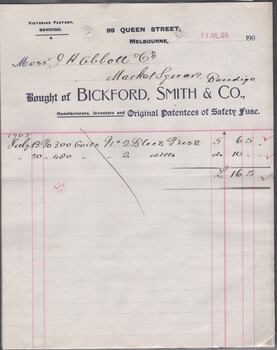 Victorian Factory,
BENDIGO.
99 QUEEN STREET,
MELBOURNE, 190
Messrs J H Abbott & Co
Market Square, Bendigo
Bought of BICKFORD, SMITH & CO.,
Manufacturers, Inventors and Original Patentees of Safety Fuse.
1905
July 13 To 300 Coils No 2 Blue Fuse 5 6 5
" 20 " 480 " " 2 ditto do 10
£ 16 5